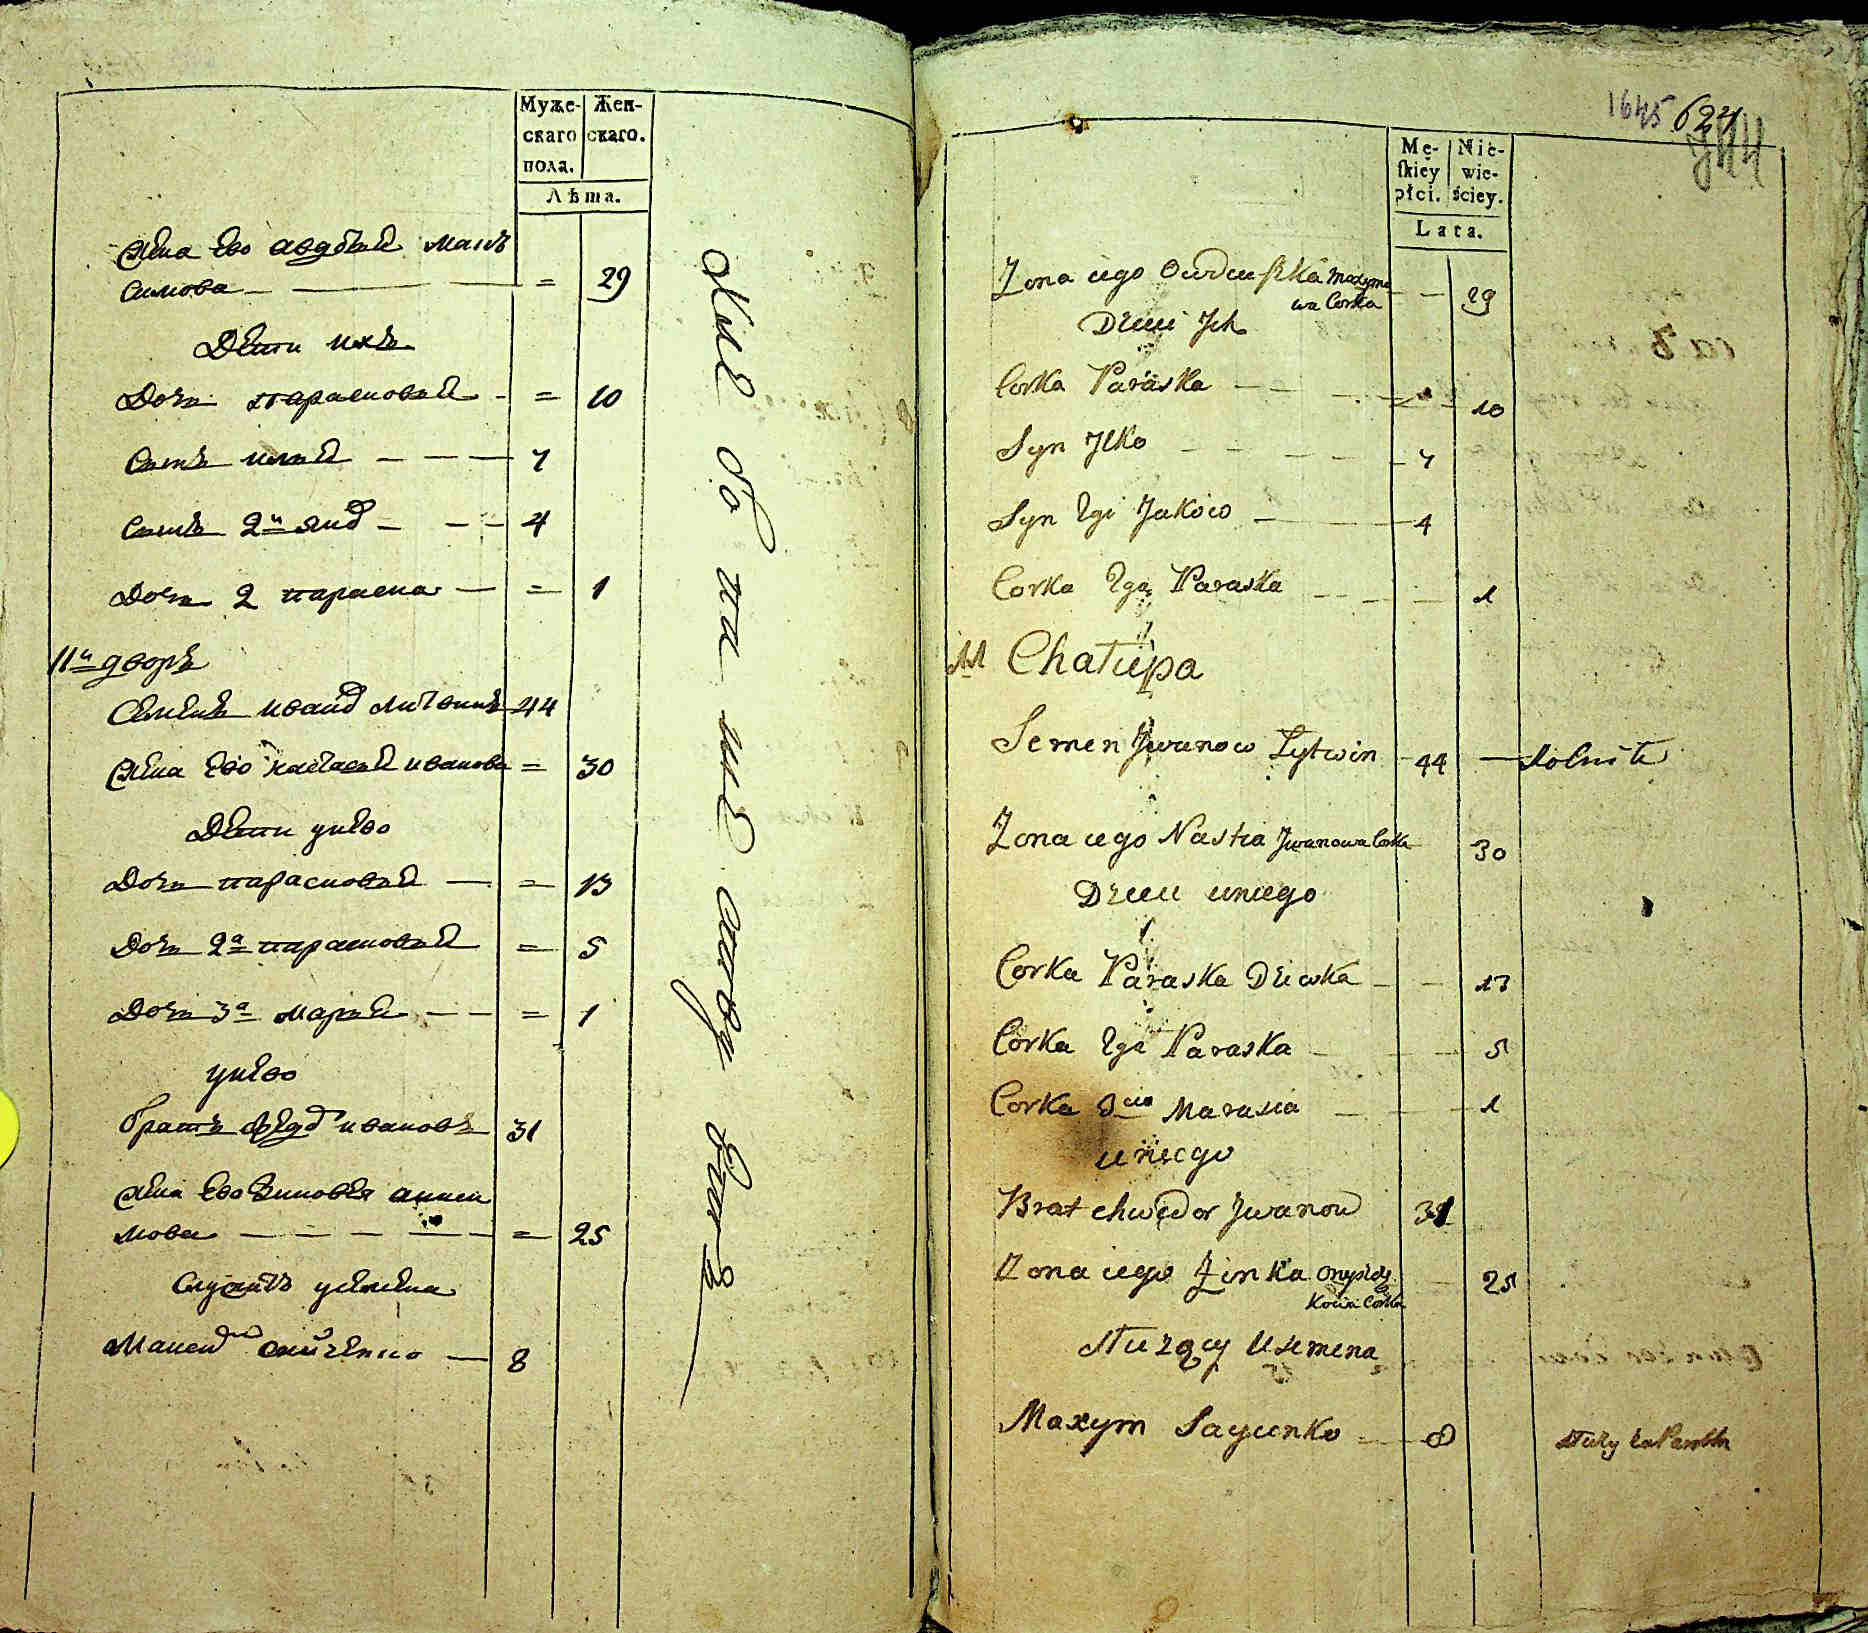 Муже-
скаго
пола.
Жен-
скаго.
Лѣта.
Жена Ево авдотья Макъ
симова — = 29
Дети ихъ
Дочь парасковья - = 10
Сынъ илья — 7
Сынъ 2й — 4
Дочь 2 параска — = 1
11й дворъ
Семенъ иванов литвинъ 44
Жена Ево настасья иванова = 30
Дети унево
Дочь парасковья — = 13
Дочь 2я парасковья = 5
Дочь 3я марья — = 1
унево
братъ ивановъ 31
Жена Ево Зиновья аниси
мова — = 25
Служитъ усемена
Максим — 8
1645 624
Mę-
skiey
płci.
Nie-
wie-
ściey.
Lata.
Zona iego Maxymo
wa Corka — 29
Dzieci Jch
Corka Paraska — 10
Syn Jlko — 7
Syn 2gi Jakow — 4
Corka 2ga Paraska — 1
11 Chałupa
Semen Jwanow Łytwin 44 —
Zona iego Nastia Jwanowa Corka 30
Dzieci uniego
Corka Paraska Dziewka — 13
Corka 2ga Paraska — 5
Corka 3cia Marusia — 1
uniego
Brat chwedor Jwanow 31
Zona iego Zinka 25
Corka
służący Usemena
Maxym — 8
służy